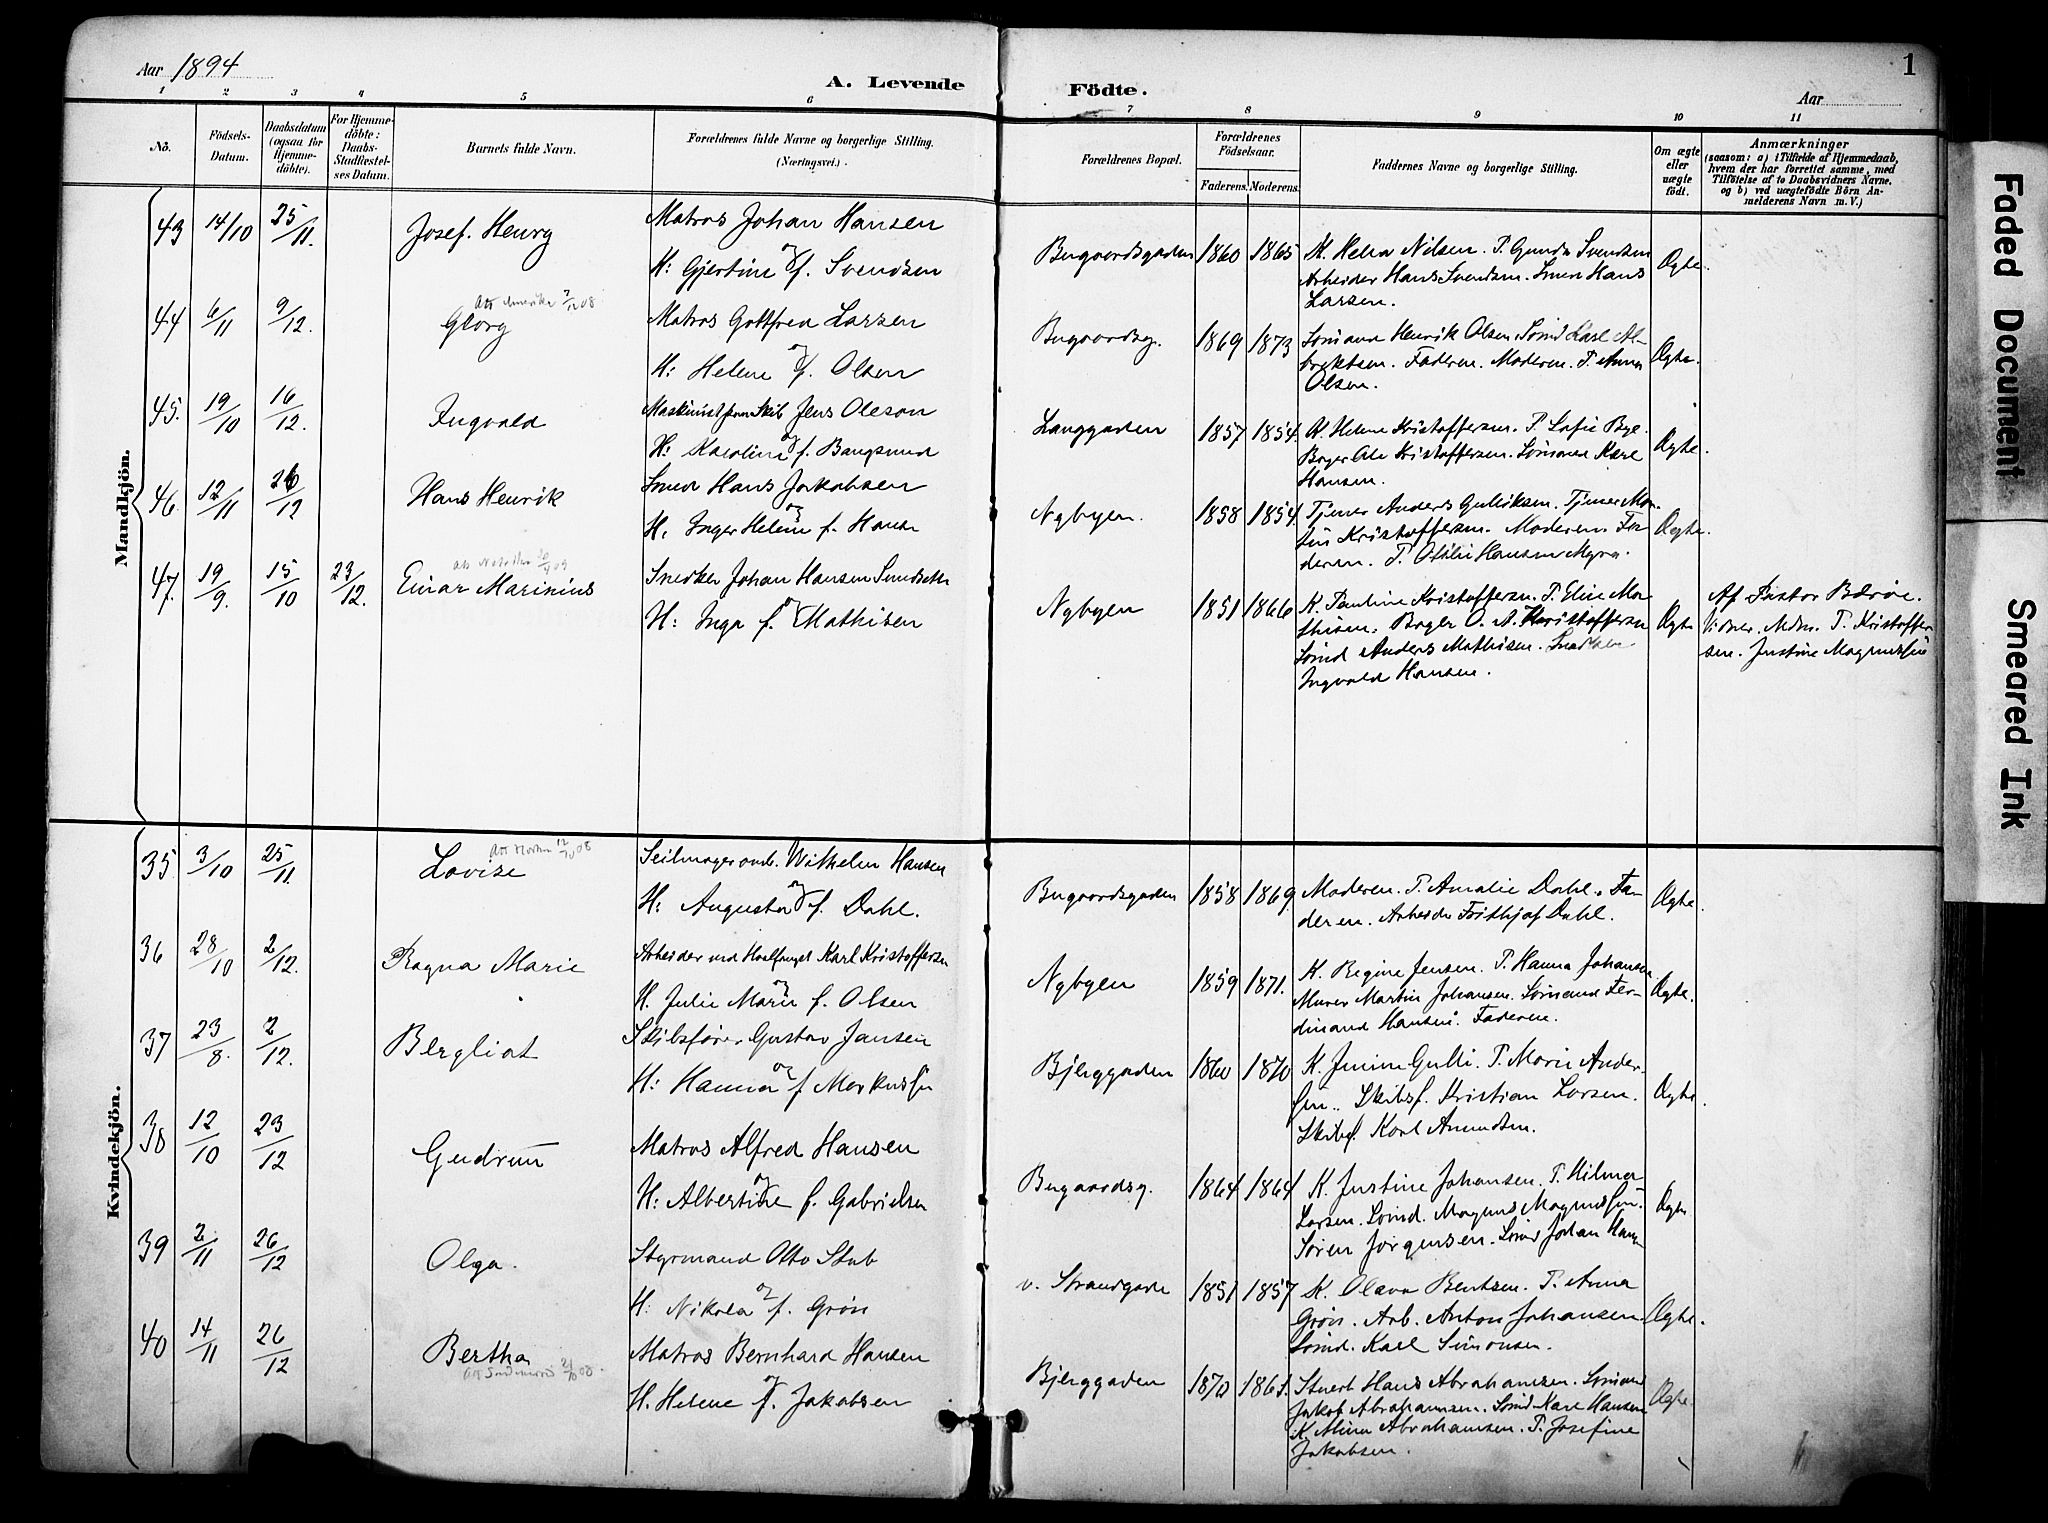 Aar 1894
A. Levende Födte.
Aar
1
1 2 3 4 5 6 7 8 9 10 11
Nô. Födsels-Datum. Daabsdatum (ogsaa for Hjemmedöbte). For Hjemmedöbte: Daabs-Stadfæstelses Datum. Barnets fulde Navn. Forældrenes fulde Navne og borgerlige Stilling. (Næringsvei.) Forældrenes Bopæl. Forældrenes Födselsaar. Faderens. Moderens. Faddernes Navne og borgerlige Stilling. Om ægte eller uægte födt. Anmærkninger (saasom: a) i Tilfælde af Hjemmedaab, hvem der har forrettet samme, med Tilföielse af to Daabsvidners Navne, og b) ved uægtefödte Börn Anmelderens Navn m. V.)
Mandkjön.
43 14/10 25/11. Josef Henry Matros Johan Hansen
og
H: Gjertine f. Svendsen
Bugaardsgaden 1860 1865 K. Helna Nilsen. P. Gunda Svendsen
Arbeider Hans Svendsen. Smed Hans
Larsen.
Ægte.
44 6/11 9/12. Georg Matros Gottfred Larsen
Att Amerika 08
og
H: Helene f. Olsen
Bugaardsg. 1869 1873 Sømand Henrik Olsen. Sømd Karl Al-
brektsen. Faderen. Moderen. P. Anna
Olsen.
Ægte.
45. 19/10 16/12. Ingvald Maskinist paa Skib Jens Oleson
og
H: Karoline f. Bangsund
Langgaden 1857 1854 K. Helene Kristoffersen. P. Sofie Bye.
Bager Ole Kristoffersen. Sømand Karl
Hansen.
Ægte.
46. 12/11 26/12 Hans Henrik Smed Hans Jakobsen
og
H. Inger Helene f. Hansen
Nybyen. 1858 1854 Tjener Anders Gulliksen. Tjener Mar-
tin Kristoffersen. Moderen. Fa-
deren. P. Otilie Hansen Myra.
Ægte.
47. 19/9. 15/10 23/12. Einar Marinius Snedker Johan Hansen Sundseth
og
H: Inga f. Mathisen
Nybyen 1851 1866 K. Pauline Kristoffersn. P. Eline Ma-
thisen. Bager O. A. Kristoffersen
Sømd Anders Mathisen. Snedker
Ingvald Hansen.
Ægte
Af Pastor Bærøe.
Vidner. Mdm. T. Kristoffer-
sen. Justine Magnussen
Kvindekjön.
35 3/10 25/11. Lovise Seilmagersvend. Wilhelm Hansen
Att Horten 12/10 08
og
H: Augusta f. Dahl.
Bugaardsgaden 1858 1869 Moderen. P. Amalie Dahl. Fa-
deren. Arbeider Fridtjof Dahl.
Ægte.
36 28/10 2/12. Ragna Marie Arbeider ved Hvalfangst Karl Kristoffersen
og
H. Julie Marie f. Olsen
Nybyen 1859 1871. K. Regine Jensen. P. Hanna Johansen
Murer Martin Johansen. Sømand Fer-
dinand Hansen. Faderen.
Ægte.
37 23/8. 2/12. Bergliot Skibsfører Gustav Jansen
og
H: Hanna f. Markussen
Bjerggaden 1860 1870 K. Jenine Gulli. P. Marie Ander-
sen. Skibsf. Kristian Larsen.
Skibsf. Karl Amundsen.
Ægte.
38 12/10 23/12 Gudrun Matros Alfred Hansen
og
H: Albertine f. Gabrielsen
Bugaardsg. 1864 1864 K. Justine Johansen. P. Hilma
Larsen. Sømd. Magnus Magnussen.
Søren Jørgensen. Sømd Johan Hans-
Ægte
39 2/11 26/12 Olga. Styrmand Otto Stub
og
H: Nikolea f. Grøn
v. Strandgade 1851 1857 K. Olava Bentsen. P. Anna
Grøn. Arb. Anton Johansen.
Sømd. Karl Simonsen.
Ægte.
40 14/11 26/12 Bertha Matros Bernhard Hansen
og
H. Helene f. Jakobsen
Bjerggaden 1870 1861. Stuert Hans Abrahamsen. Sømand
Jakob Abrahamsen. Sømd Karl Hansen
K. Alina Abrahamsen. P. Josefine
Jakobsen.
Ægte.
Faded Document
Smeared Ink